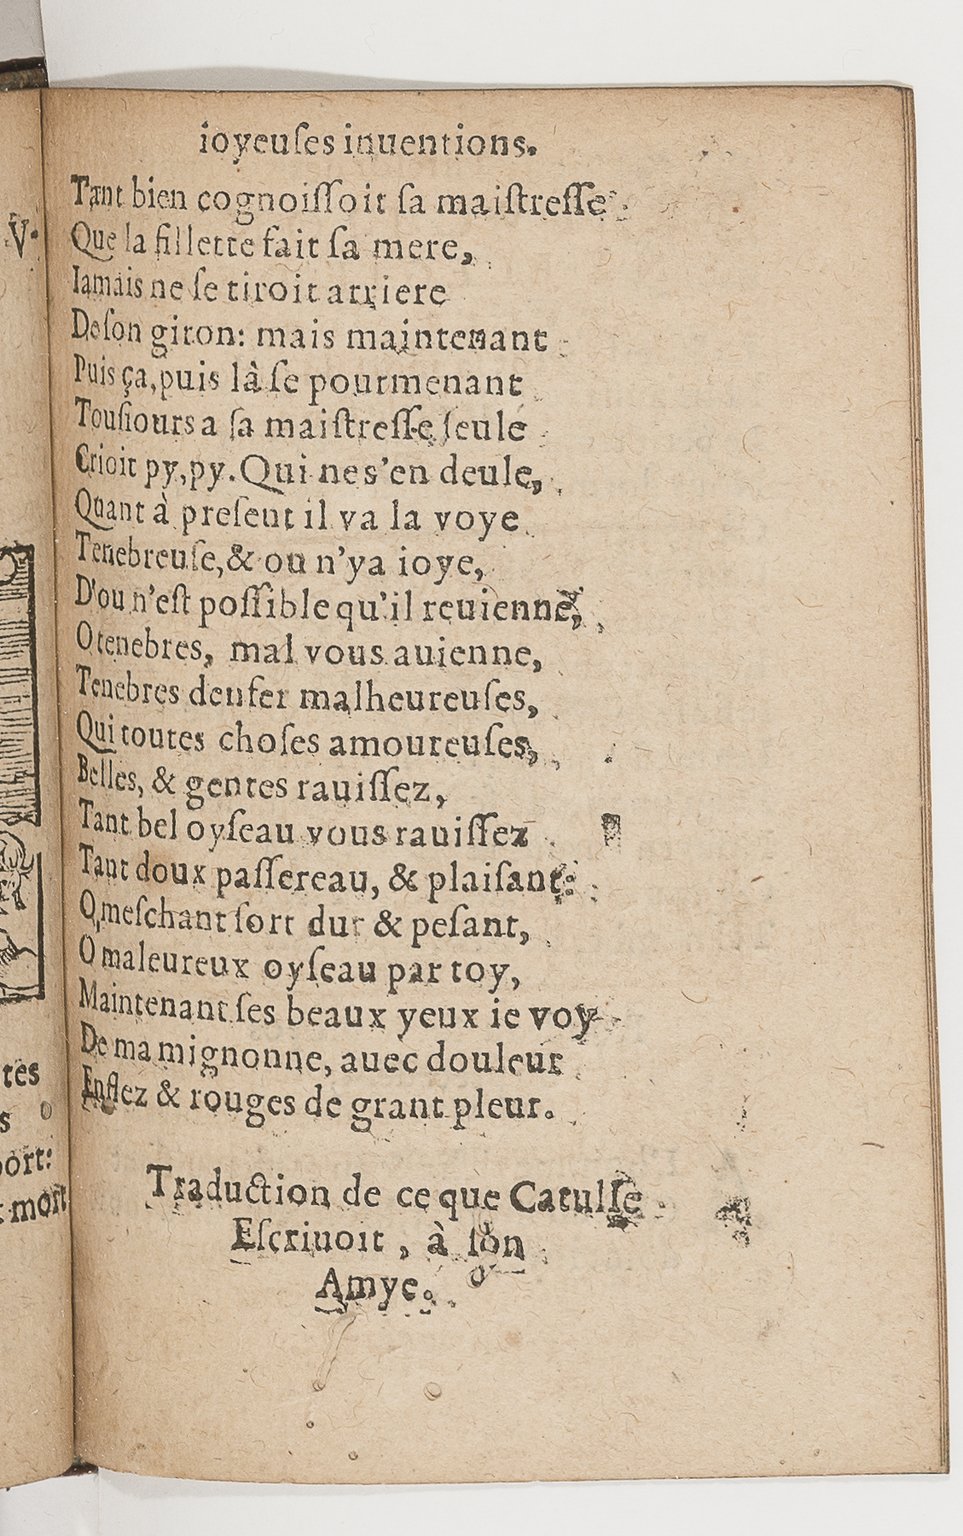 ioyeuſes inuentions.
Tant bien cognoiſſoit ſa maiſtreſſe
Que la fillette fait ſa mere,
Iamais ne ſe tiroit arriere
De ſon giron: mais maintenant
Puis ça, puis là ſe pourmenant
Touſiours a ſa maiſtreſſe ſeule
Crioit py, py. Qui ne s'en deule,
Quant à preſent il va la voye
Tenebreuſe, & ou n'ya ioye,
D'ou n'eſt poſſible qu'il reuienne,
O tenebres, mal vous auienne,
Tenebres denfer malheureuſes,
Qui toutes choſes amoureuſes,
Belles, & gentes rauiſſez,
Tant bel oyſeau vous rauiſſez
Tant doux paſſereau, & plaiſant:
O meſchant ſort dur & peſant,
O maleureux oyſeau par toy,
Maintenant ſes beaux yeux ie voy
De ma mignonne, auec douleur
Enflez & rouges de grant pleur.
Traduction de ce que Catulle
Eſcriuoit, à ſon
Amye.
V.
tes
s
ort:
mort